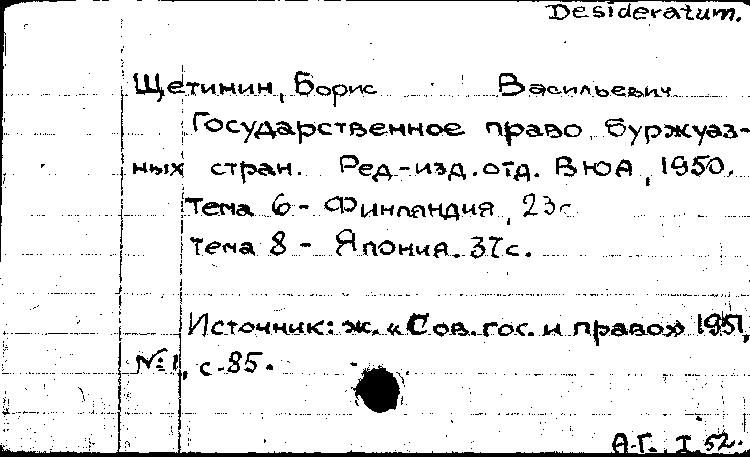 Desideratum.
Щетинин, Борис Васильевич
Государственное право буржуаз-
ных стран. Ред-изд. отд. ВЮА, 1950.
Тема 6 - Финляндия, 23с
Тема 8 - Япония. 37с.
Источник: ж. «Сов. гос. и право» 1951,
№1, с-85.
А-Г. I.52.